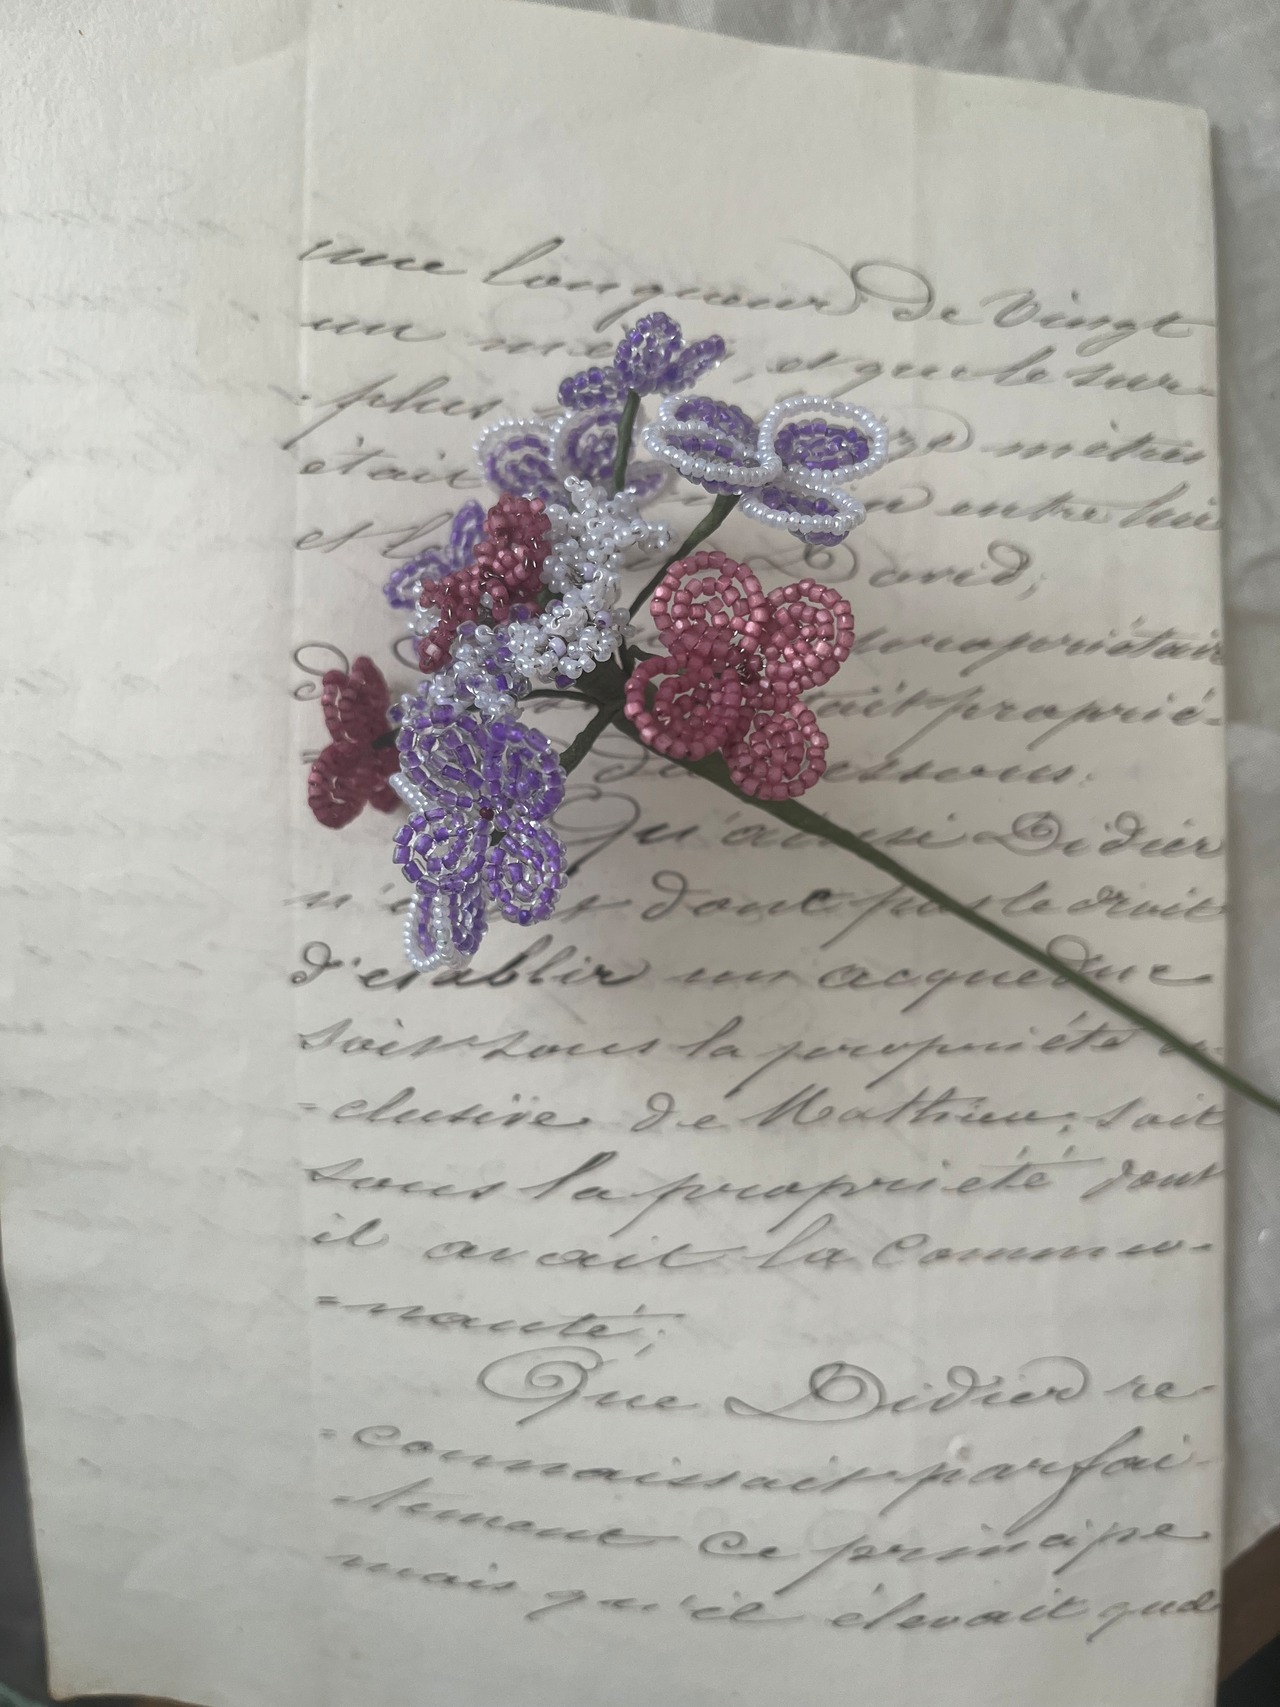 une longueur de Vingt
un et que le sur
plus mètres
était entre lui
et David;
propriétaire
proprié-
dessous.
Qu'ainsi Didier
donc pas le droit
d'établir un acqueduc
soit sous la propriété
-clusive de Mathieu, soit
sous la propriété dont
il avait la commu-
-nauté;
Que Didier re-
-connaissait parfai-
-tement ce principe
mais qu'il élevait que